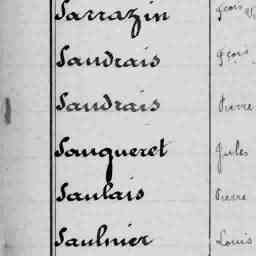 Sarrazin
Saudrais
Saudrais Pierre
Sauqueret Jules
Saulais Pierre
Saulnier Louis